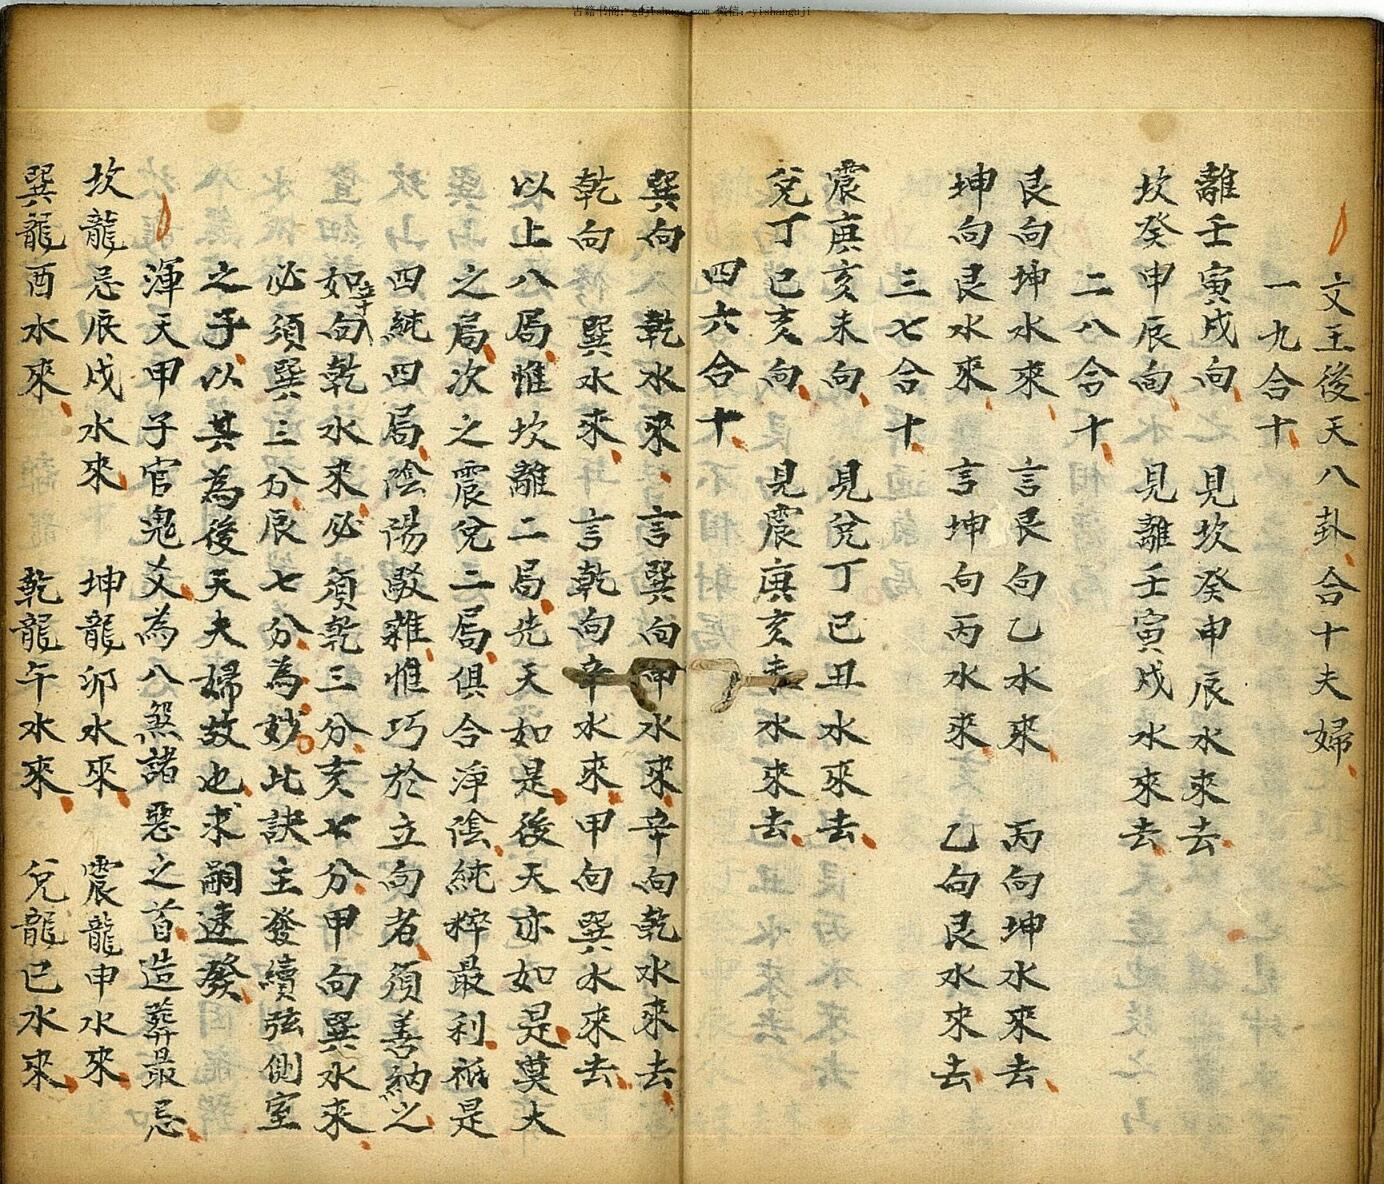 古籍书阁：gujishuge.com 微信：yishanguji
文王後天八卦合十夫婦
一九合十
離壬寅戌向　見坎癸申辰水來去
坎癸申辰向　見離壬寅戌水來去
二八合十
艮向坤水來　言艮向乙水來　丙向坤水來去
坤向艮水來　言坤向丙水來　乙向艮水來去
三七合十
震庚亥未向　見兌丁巳丑水來去
兌丁巳亥向　見震庚亥未水來去
四六合十
巽向　乾水來　言巽向甲水來辛向乾水來去
乾向　巽水來　言乾向辛水來甲向巽水來去
以上八局惟坎離二局先天如是後天亦如是莫大
之局次之震兌二局俱合淨陰純粹最利祗是
四純四局陰陽駁雜惟巧於立向者須善納之
如向乾水來必須乾三分亥七分甲向巽水來
必須巽三分辰七分為妙此訣主發續弦側室
之子以其為後天夫婦故也求嗣速發
渾天甲子官鬼爻為八煞諸惡之首造葬最忌
坎龍忌辰戌水來　坤龍卯水來　震龍申水來
巽龍酉水來　乾龍午水來　兌龍巳水來